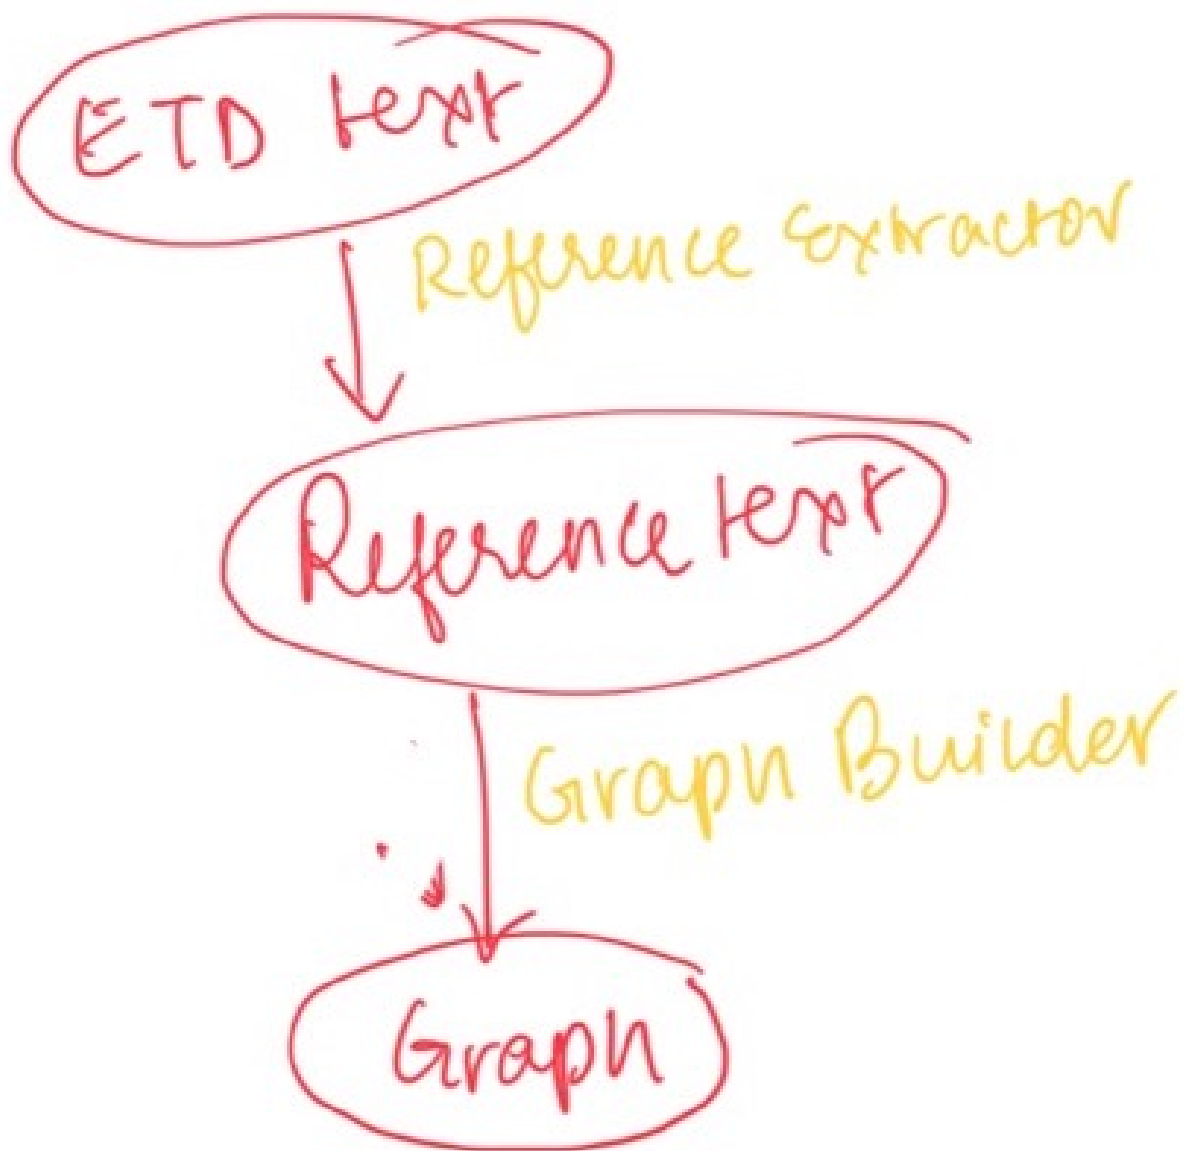 ETD text
Reference Extractor
Reference text
Graph Builder
Graph